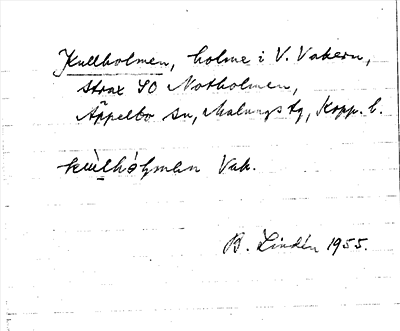 Kullholmen, holme i V. Vakern,
strax SO Notholmen,
Äppelbo sn, Malungs tg, Kopp. l.
B. Lindén 1955.